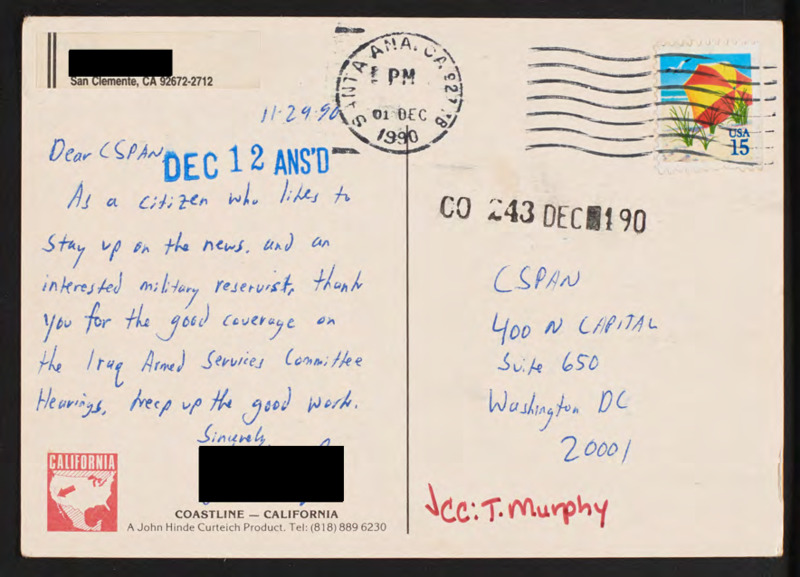 San Clemente, CA 92672-2712
SANTA ANA. CA. 927
PM
01 DEC
1990
USA
15
11-29-90
Dear CSPAN
DEC 12 ANS'D
As a citizen who likes to
stay up on the news, and an
interested military reservist, thank
you for the good coverage on
the Iraq Armed Services Committee
Hearings, keep up the good work.
Sincerely
CALIFORNIA
COASTLINE — CALIFORNIA
A John Hinde Curteich Product. Tel: (818) 889 6230
CO 243 DEC 190
CSPAN
400 N CAPITAL
Suite 650
Washington DC
20001
CC: T. Murphy